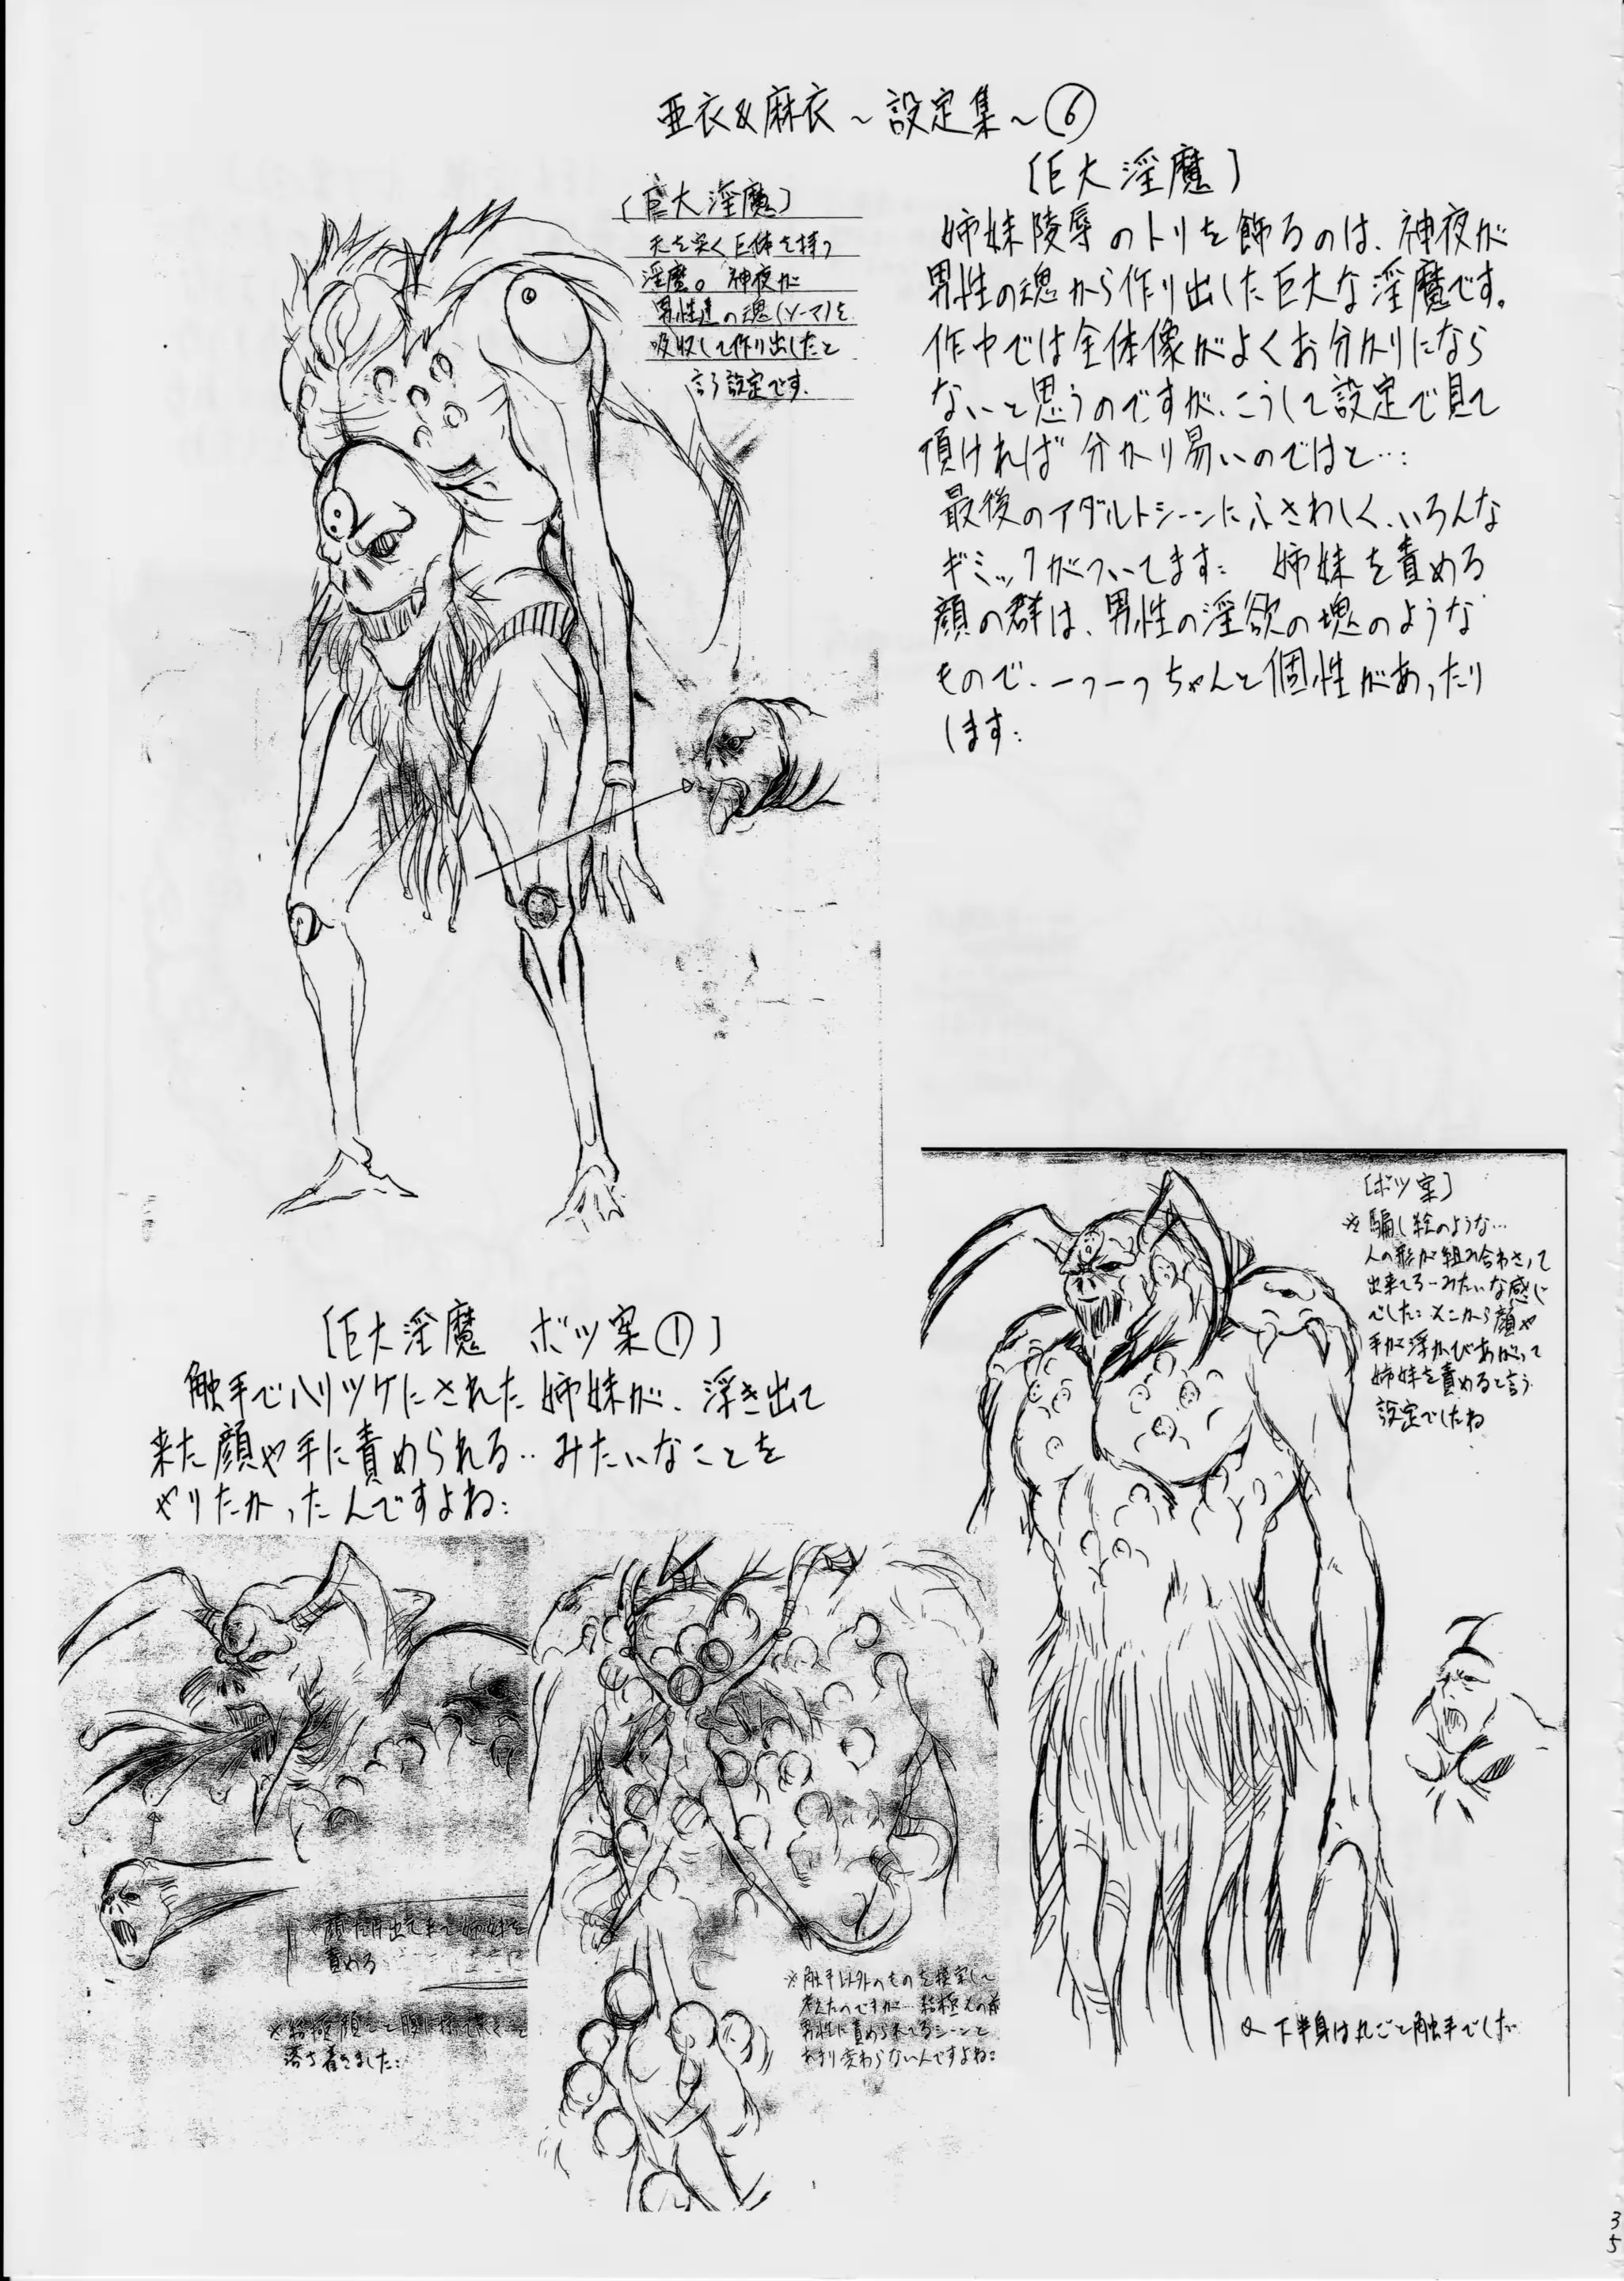 亜衣&麻衣～設定集～⑥
〔巨大淫魔〕
天を突く巨体を持つ
淫魔。神夜が
男性達の魂(ソーマ)を
吸収して作り出したと
言う設定です.
〔巨大淫魔〕
姉妹陵辱のトリを飾るのは、神夜が
男性の魂から作り出した巨大な淫魔です。
作中では全体像がよくお分かりになら
ないと思うのですが、こうして設定で見て
頂ければ分かり易いのではと…:
最後のアダルトシーンにふさわしく、いろんな
ギミックがついてます: 姉妹を責める
顔の群は、男性の淫欲の塊のような
もので、一つ一つちゃんと個性があったり
します:
〔ボツ案〕
※騙し絵のような…
人の形が組み合わさって
出来てるーみたいな感じ
でした: そこから顔や
手が浮かびあがって
姉妹を責めると言う
設定でしたね
〔巨大淫魔 ボツ案①〕
触手でハリツケにされた姉妹が、浮き出て
来た顔や手に責められる‥みたいなことを
やりたかったんですよね:
出て来て姉妹を
責める
※結極顔
落ち着きました:
※触手以外のものを模索して
考えたのですが…結極
男性に責められてるシーンと
あまり変わらないんですよね:
下半身は丸ごと触手でした
35